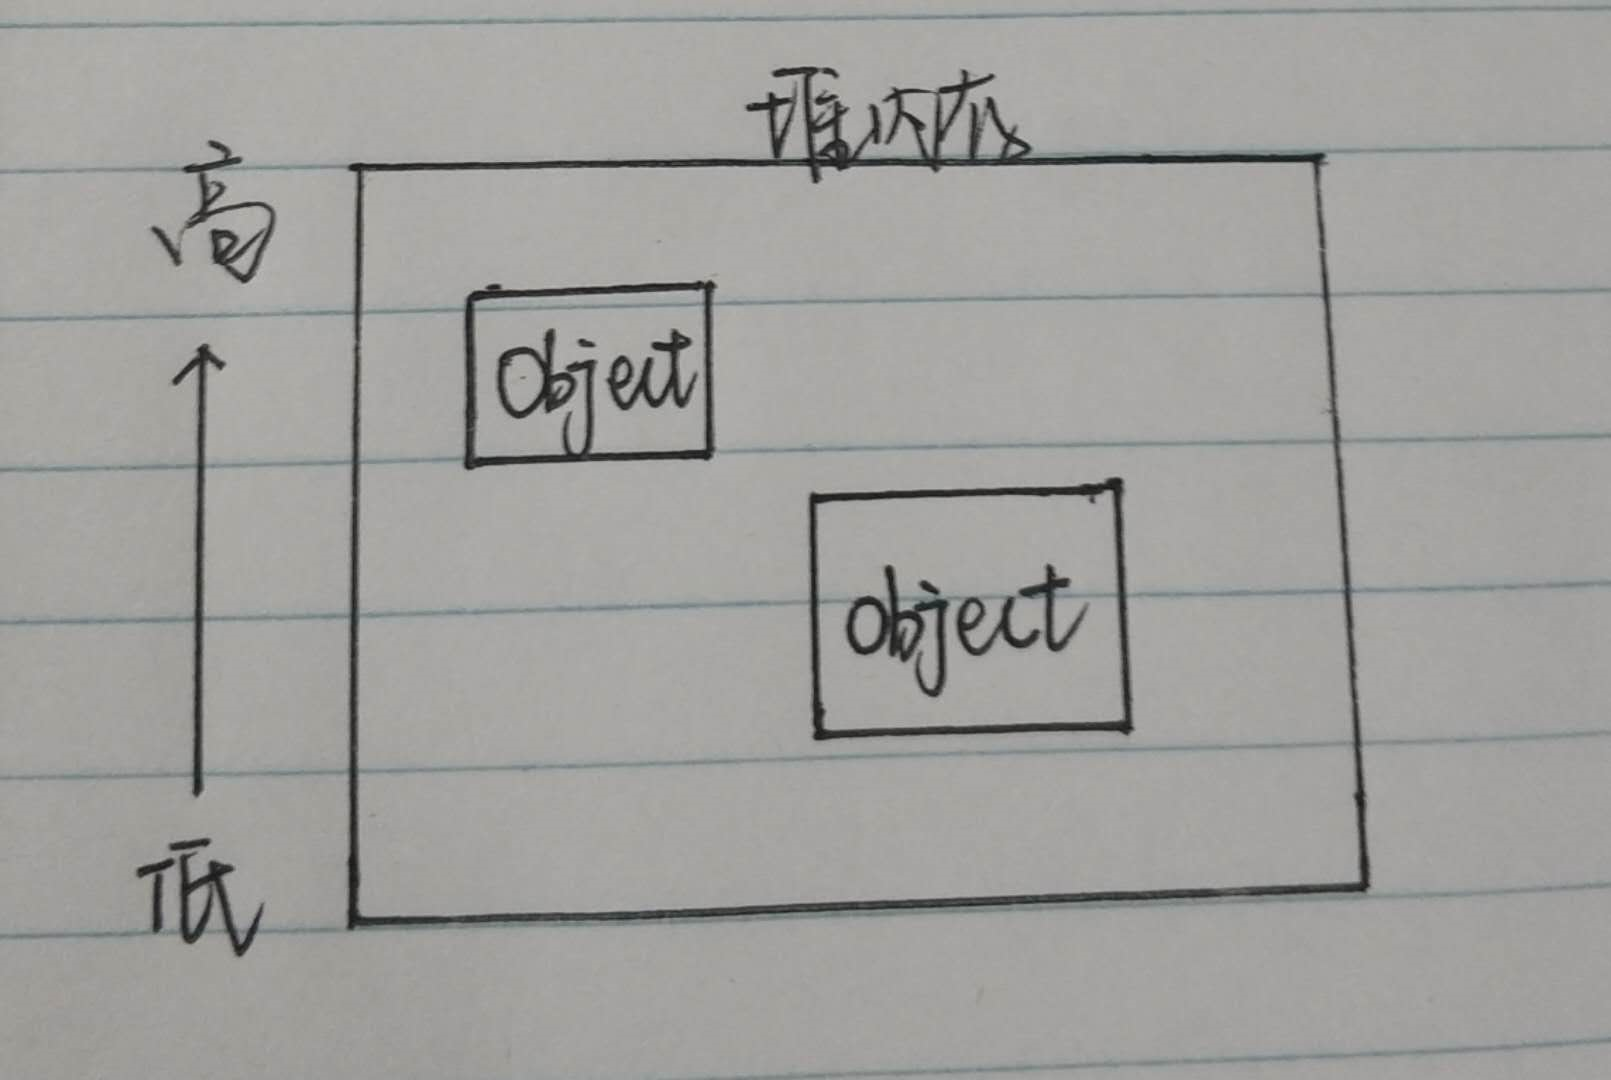 堆内存
高
Object
object
低